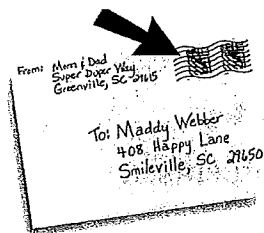 From: Mom & Dad
Super Duper Way
Greenville, SC 29615
To: Maddy Webber
408 Happy Lane
Smileville, SC 29650